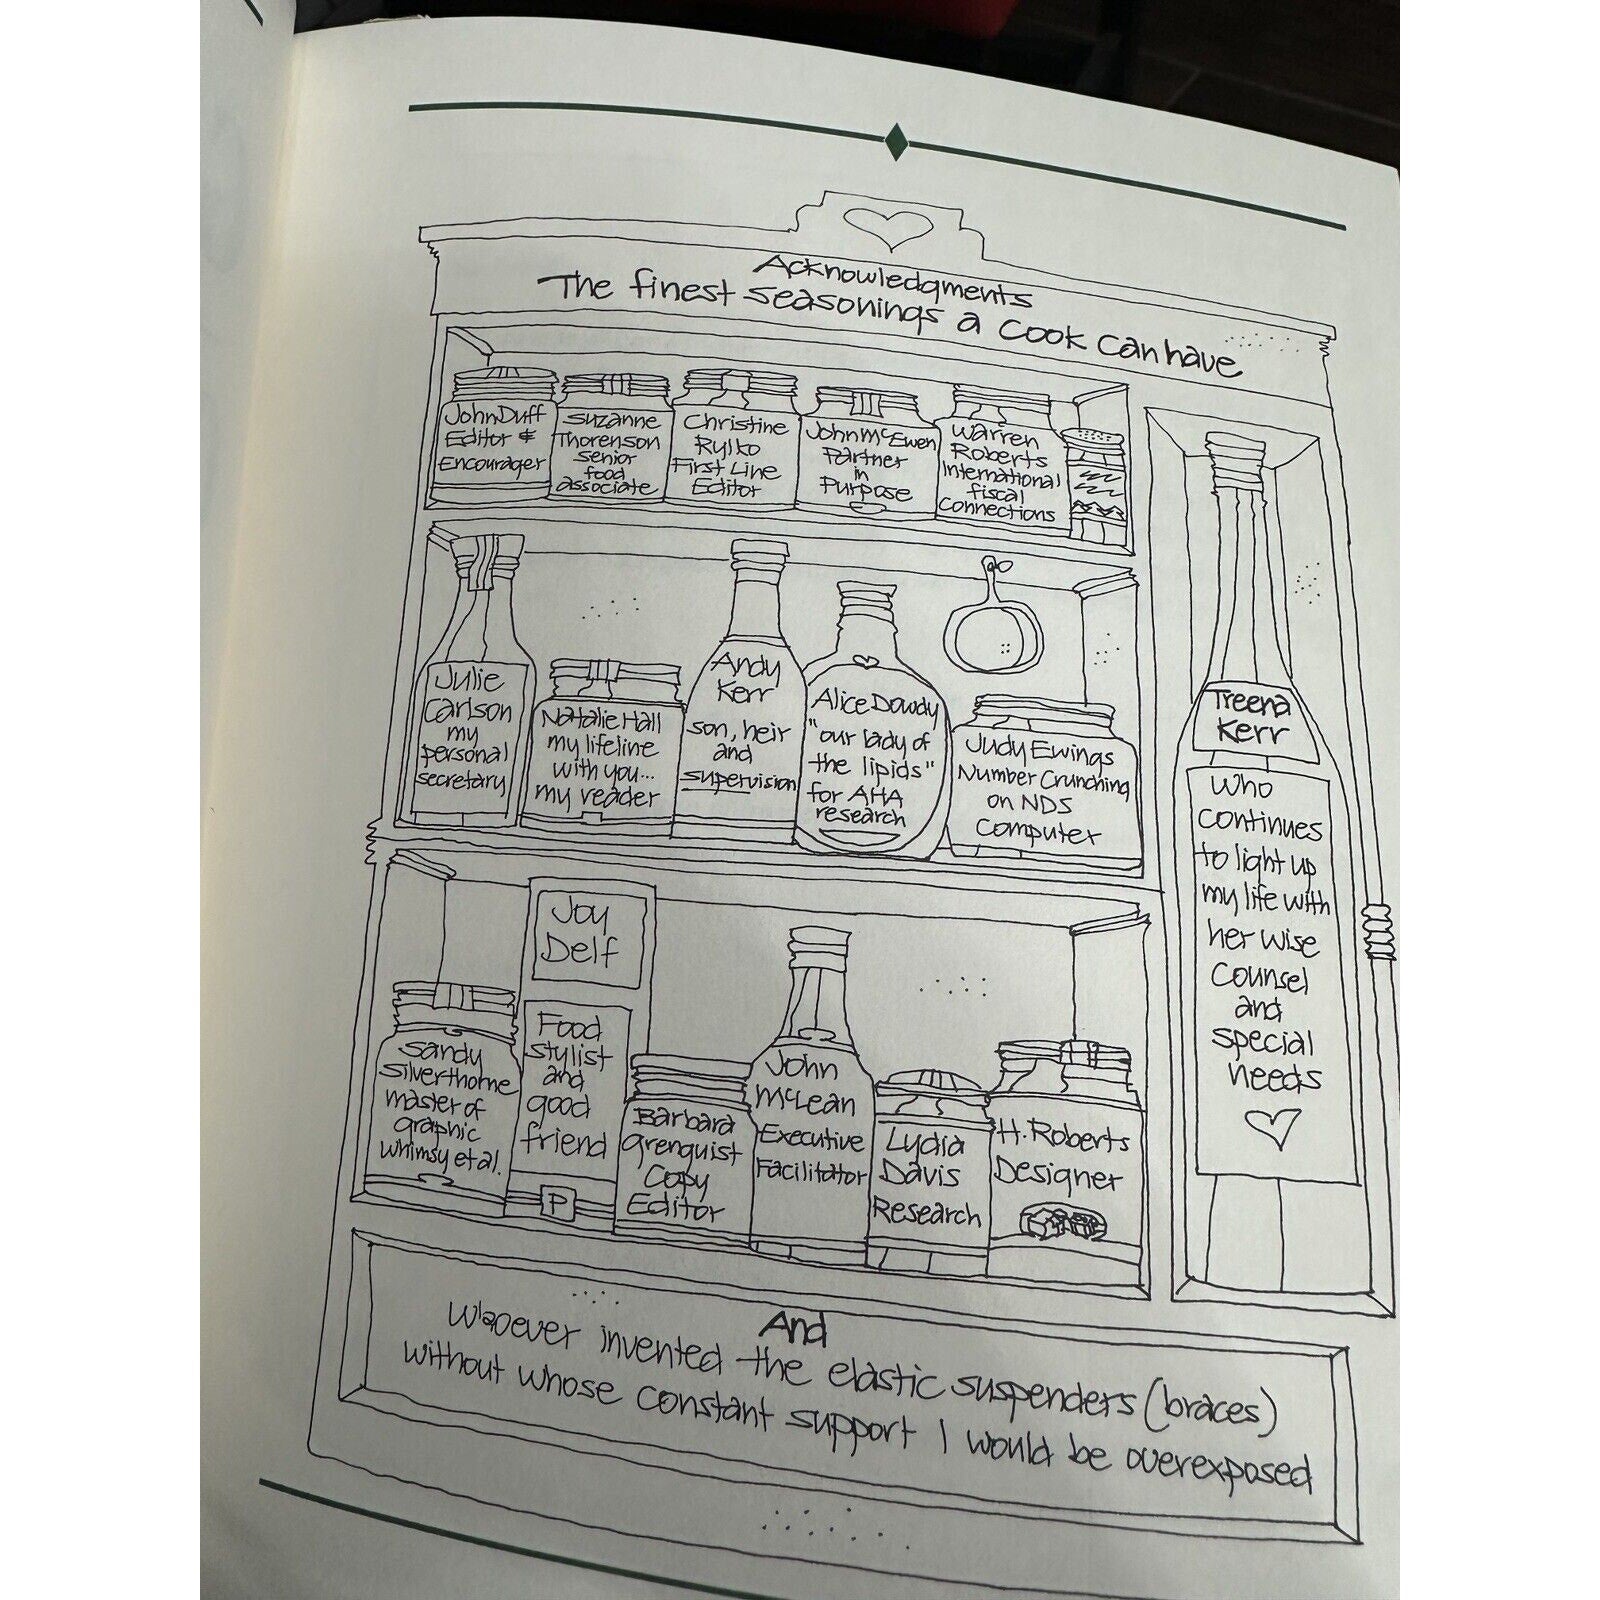 Acknowledgments
The finest seasonings a cook can have
John Duff
Editor &
Encourager
Suzanne
Thorenson
senior
food
associate
Christine
Rylko
First Line
Editor
John McEwen
Partner
in
Purpose
Warren
Roberts
International
fiscal
Connections
Julie
Carlson
my
personal
secretary
Natalie Hall
my lifeline
with you...
my reader
Andy
Kerr
son, heir
and
supervision
Alice Dowdy
"our lady of
the lipids"
for AHA
research
Judy Ewings
Number Crunching
on NDS
Computer
Treena
Kerr
Who
continues
to light up
my life with
her wise
counsel
and
special
needs
Sandy
Silverthorne
master of
graphic
whimsy et al.
Joy
Delf
Food
stylist
and
good
friend
P
Barbara
Grenquist
Copy
Editor
John
McLean
Executive
Facilitator
Lydia
Davis
Research
H. Roberts
Designer
And
Whoever invented the elastic suspenders (braces)
without whose constant support I would be overexposed